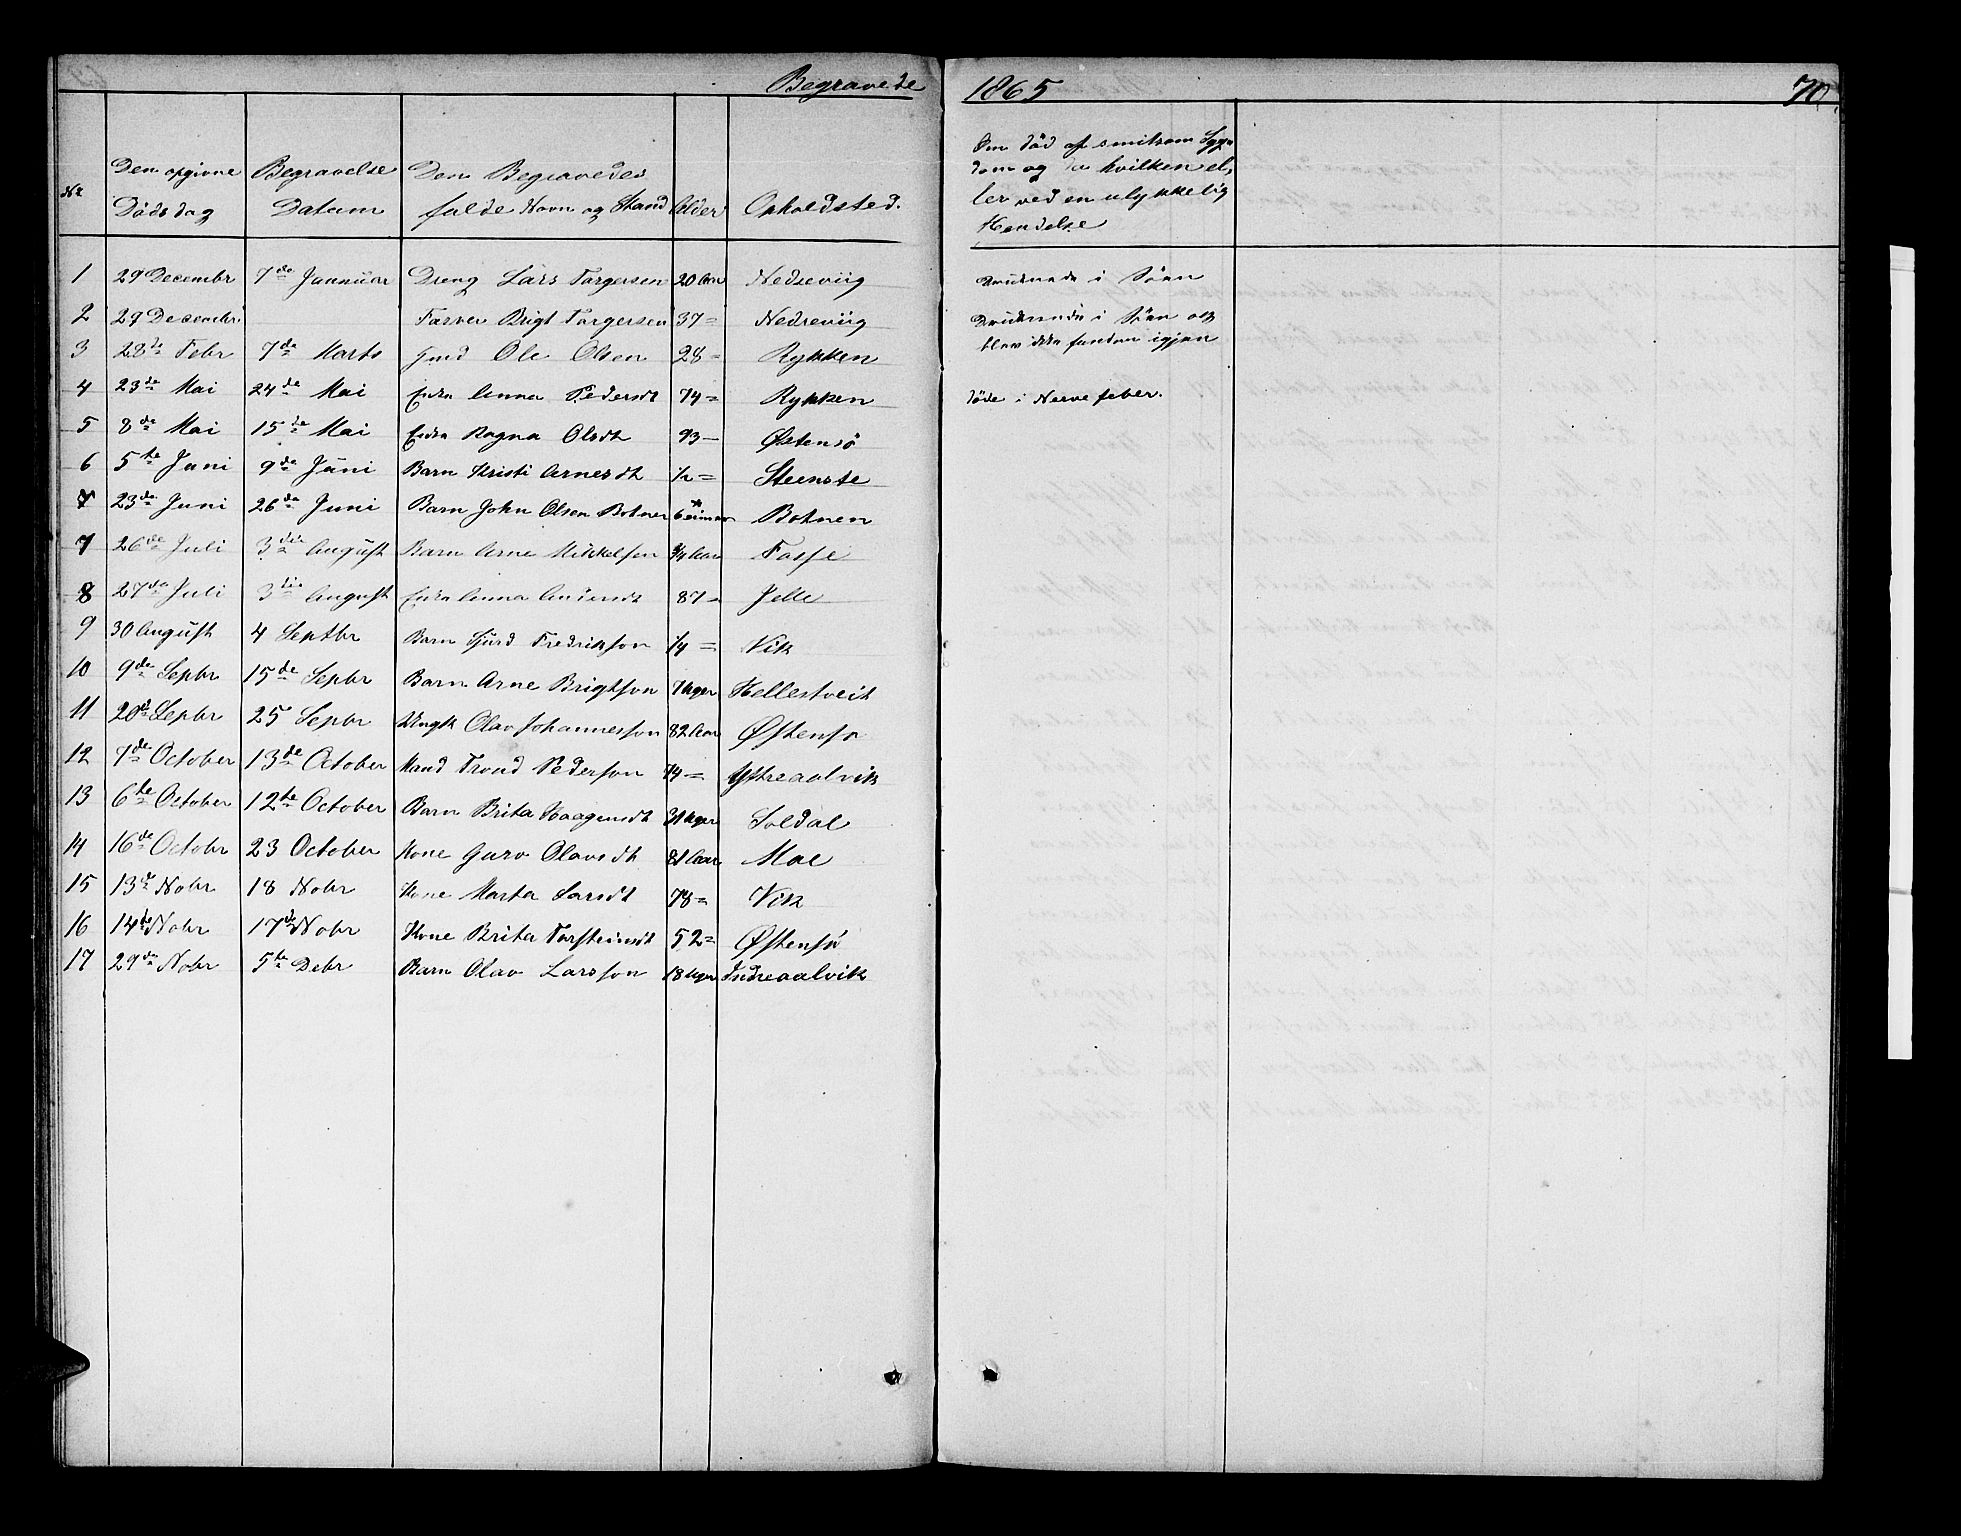 Begravede 1865 70
No
Den opgivne Dödsdag
Begravelse Datum
Den Begravedes fulde Navn og Stand
Alder
Opholdsted.
Om död af smitsom Syg-
dom og da hvilken el-
ler ved en ulykkelig
Hendelse
1 29 Decembr 7de Januar Dreng Lars Torgersen 20 Aar Nedreviig Druknede i Söen
2 29 Decembr Brigt Torgersen 37 = Nedreviig Druknede i Söen og
blev ikke funden igjen
3 28de Febr 7de Marts Ole Olsen 28 = Rykken
4 23de Mai 24de Mai Enke Anna Pedersdt 74 = Rykken döde i Nerve feber.
5 8de Mai 15de Mai Enke Ragna Olsdt 93 — Østensö
6 5te Juni 9de Juni Barn Kristi Arnesdt ½ = Steinstö
7 23de Juni 26de Juni Barn John Olsen Botnen 6 Botnen
7 26de Juli 3die August Barn Arne Mikkelson ¾ Aar Fosse
8 27de Juli 3die August Enke Anna 87 = Jelle
9 30 August 4 Septbr Barn Sjurd Fredrikson ¼ = Vik
10 9de Sepbr 15de Sepbr Barn Arne Brigtson 7 Uger Hellestveit
11 20de Sepbr 25 Sepbr Ungk Olav Johannesson 82 Aar Østensö
12 7de October 13de October Mand Trond Pederson 74 = Ystreaalvik
13 6te October 12te October Barn Brita Haagensdt 31 Uger Soldal
14 16de Octobr 23 October Kone Guro Olavsdt 81 Aar Moe
15 13de Nobr 18 Nobr Kone Marta Larsdt 78 = Vik
16 14de Nobr 17de Nobr Kone Brita Torsteinsdt 52 = Østensö
17 29de Nobr 5te Debr Barn Olav Larsson 18 Uger Indreaalvik